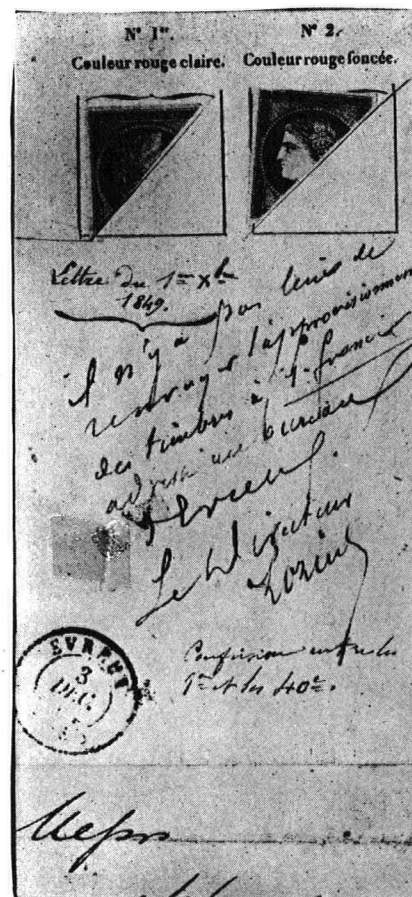 N° 1er.
N° 2.
Couleur rouge claire.
Couleur rouge foncée.
Lettre du 1er Xbre
1849.
Il n'y a pas lieu de
renvoyer l'approvisionnement
des timbres à 1 franc
adressé au bureau
d'Evreux.
Le Directeur
EVREUX
3
DEC.
Confusion entre les
1F et les 40c.